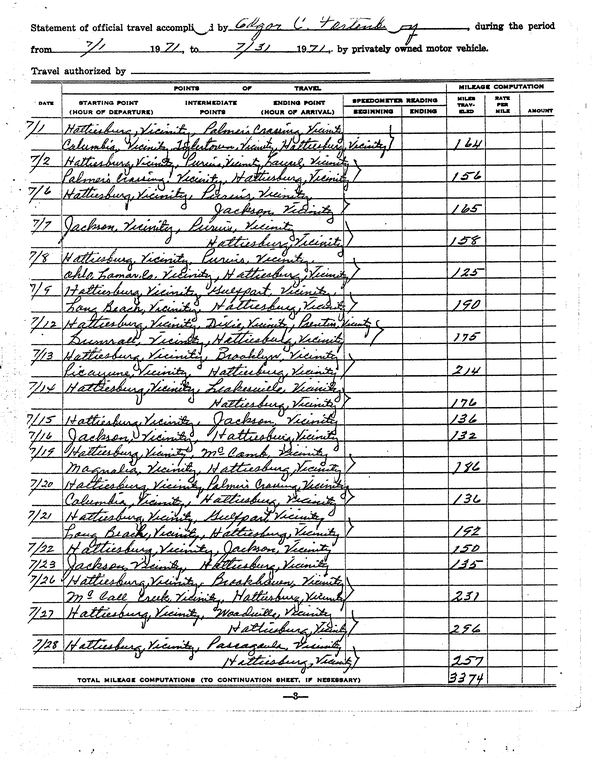 Statement of official travel accomplished by Edgar C. Fortenberry, during the period
from 7/1 1971, to 7/31 1971, by privately owned motor vehicle.
Travel authorized by
POINTS OF TRAVEL MILEAGE COMPUTATION
DATE STARTING POINT (HOUR OF DEPARTURE) INTERMEDIATE POINTS ENDING POINT (HOUR OF ARRIVAL) SPEEDOMETER READING BEGINNING ENDING MILES TRAV-ELED RATE PER MILE AMOUNT
7/1 Hattiesburg, Vicinity, Palmers Crossing, Vicinity
Columbia, Vicinity, Tylertown, Vicinity, Hattiesburg, Vicinity 164
7/2 Hattiesburg, Vicinity, Purvis, Vicinity, Laurel, Vicinity
Palmers Crossing Vicinity, Hattiesburg, Vicinity 156
7/6 Hattiesburg, Vicinity, Purvis, Vicinity
Jackson, Vicinity 165
7/7 Jackson, Vicinity, Purvis, Vicinity
Hattiesburg, Vicinity 158
7/8 Hattiesburg, Vicinity, Purvis, Vicinity,
Ohlo, Lamar Co. Vicinity, Hattiesburg, Vicinity 125
7/9 Hattiesburg, Vicinity, Gulfport, Vicinity,
Long Beach, Vicinity, Hattiesburg, Vicinity 190
7/12 Hattiesburg, Vicinity, Dixie, Vicinity, Prentiss, Vicinity
Sumrall, Vicinity, Hattiesburg, Vicinity 175
7/13 Hattiesburg, Vicinity, Brooklyn, Vicinity
Picayune, Vicinity, Hattiesburg, Vicinity 214
7/14 Hattiesburg, Vicinity, Leakesville, Vicinity
Hattiesburg, Vicinity 176
7/15 Hattiesburg, Vicinity, Jackson, Vicinity 136
7/16 Jackson, Vicinity, Hattiesburg, Vicinity 132
7/19 Hattiesburg, Vicinity, McComb, Vicinity
Magnolia, Vicinity, Hattiesburg, Vicinity 186
7/20 Hattiesburg, Vicinity, Palmers Crossing, Vicinity
Columbia, Vicinity, Hattiesburg, Vicinity 136
7/21 Hattiesburg, Vicinity, Gulfport Vicinity
Long Beach, Vicinity, Hattiesburg, Vicinity 192
7/22 Hattiesburg, Vicinity, Jackson, Vicinity 150
7/23 Jackson, Vicinity, Hattiesburg, Vicinity 135
7/26 Hattiesburg, Vicinity, Brookhaven, Vicinity
McCall Creek Vicinity, Hattiesburg, Vicinity 231
7/27 Hattiesburg, Vicinity, Woodville, Vicinity
Hattiesburg, Vicinity 296
7/28 Hattiesburg, Vicinity, Pascagoula, Vicinity
Hattiesburg, Vicinity 257
TOTAL MILEAGE COMPUTATIONS (TO CONTINUATION SHEET, IF NECESSARY) 3374
—3—